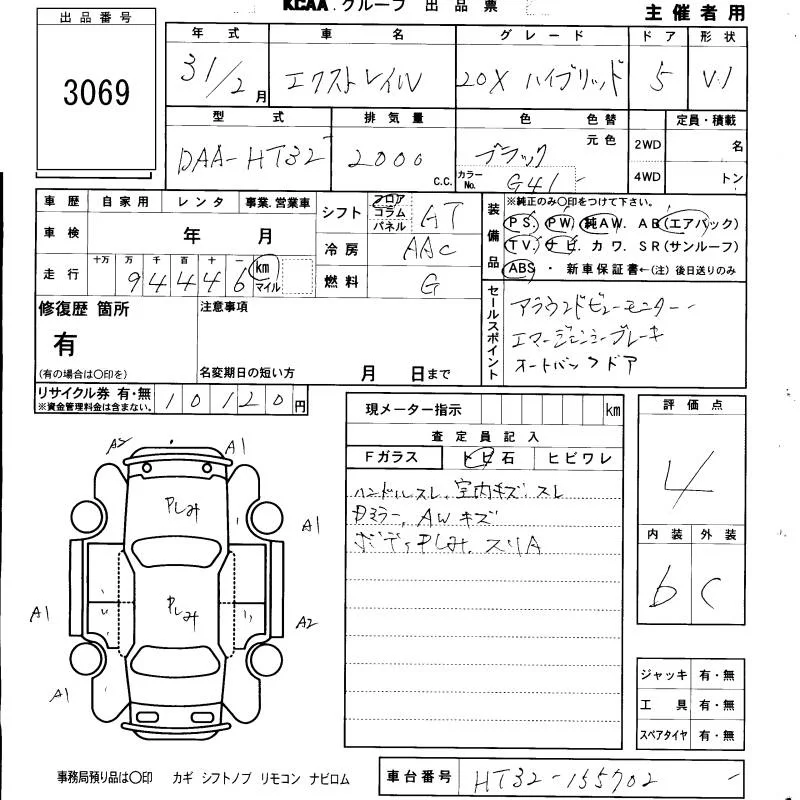 KCAA.グループ 出品票
主催者用
出品番号
3069
年式 車名 グレード ドア 形状
31/2月 エクストレイル 20X ハイブリッド 5 V.1
型式 排気量 色 色替 定員・積載
元色 2WD 名
DAA-HT32 2000 c.c. ブラック
カラーNo. G41 4WD トン
車歴 自家用 レンタ 事業.営業車
車検 年 月
走行 十万 万 千 百 十 一
94446 km マイル
シフト フロア コラム パネル AT
冷房 AAC
燃料 G
装備品
※純正のみ〇印をつけて下さい。
PS. PW. 純AW. AB(エアバック)
TV. ナビ. カワ. SR(サンルーフ)
ABS ・ 新車保証書←(注)後日送りのみ
修復歴 箇所
有
(有の場合は〇印を)
注意事項
名変期日の短い方 月 日まで
セールスポイント
アラウンドビューモニター
エマージェンシーブレーキ
オートバックドア
リサイクル券 有・無
※資金管理料金は含まない。
10120円
現メーター指示 km
査定員記入
Fガラス トビ石 ヒビワレ
ハンドルスレ、室内キズ・スレ
Dミラー、AWキズ
ボディPしみ、スリA
評価点
4
内装 外装
b C
A2 A1
Pしみ
A1
Pしみ
A1 A2
A1
ジャッキ 有・無
工具 有・無
スペアタイヤ 有・無
事務局預り品は〇印 カギ シフトノブ リモコン ナビロム
車台番号 HT32-155702